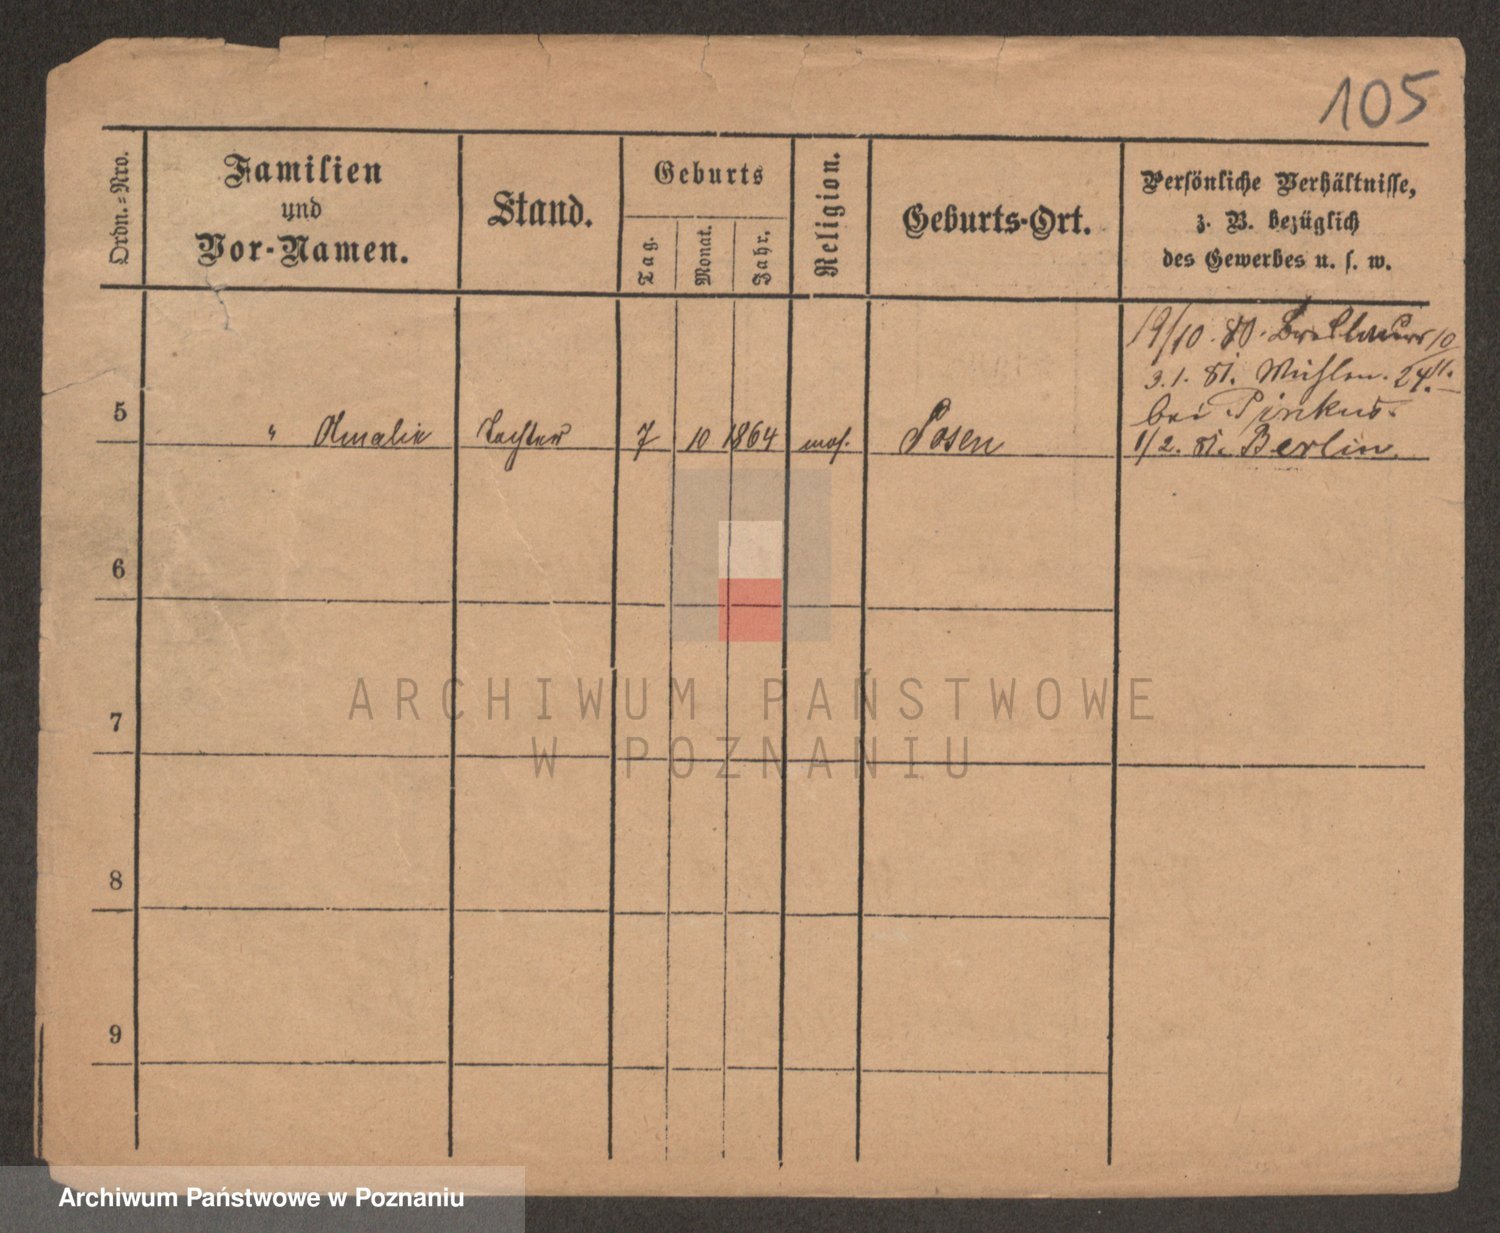 105
Ordn.-Nro.
Familien
und
Vor-Namen.
Stand.
Geburts
Tag.
Monat.
Jahr.
Religion.
Geburts-Ort.
Persönliche Verhältnisse,
z. B. bezüglich
des Gewerbes u. s. w.
19/10. 80. Breslauerstr 10
3.1. 81. Mühlen. 24 II.
bei Pinkus.
5 " Amalie Tochter 7 10 1864 mos. Posen 1/2. 81. Berlin.
6
7
8
9
ARCHIWUM PAŃSTWOWE
W POZNANIU
Archiwum Państwowe w Poznaniu